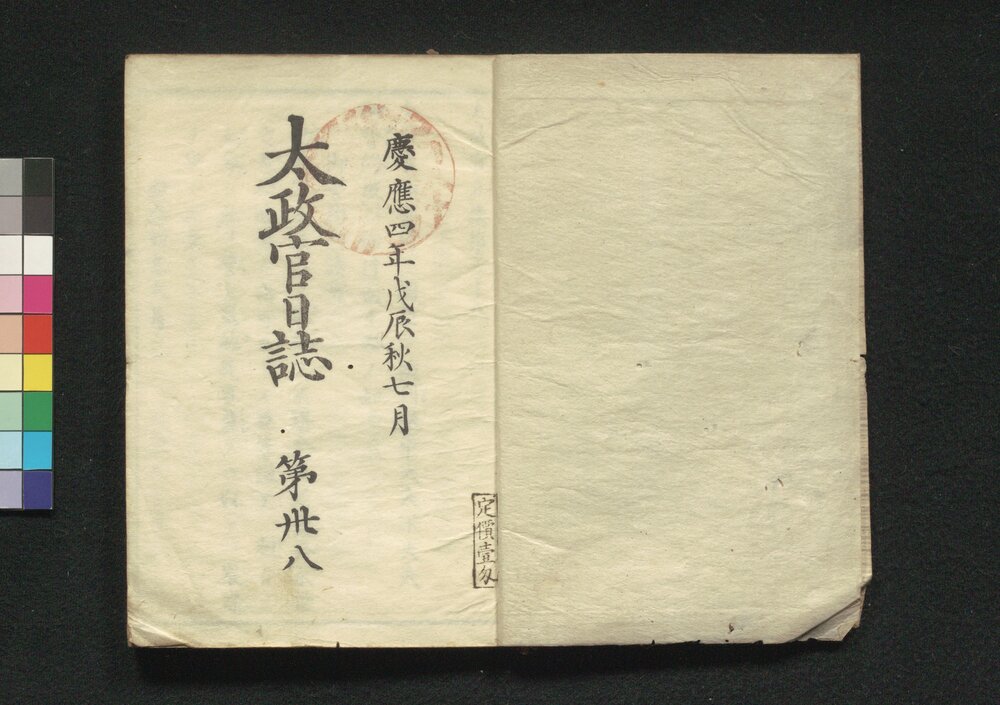 慶應四年戊辰秋七月
太政官日誌 第卅八
定價壹匁